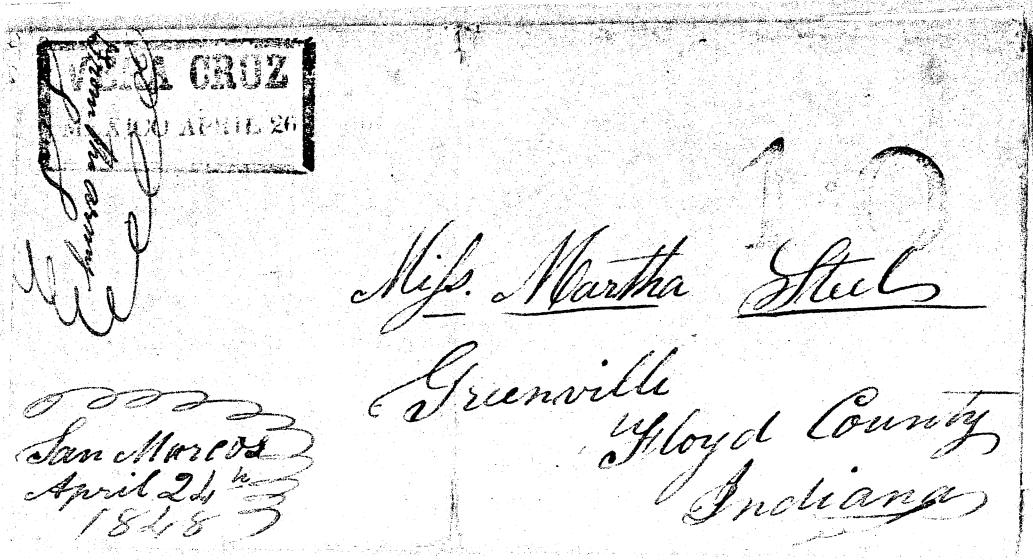 VERA CRUZ
MEXICO APRIL 26
From the army
10
Miss. Martha Steel
Greenville
Floyd County
Indiana
San Marcos
April 24th
1848